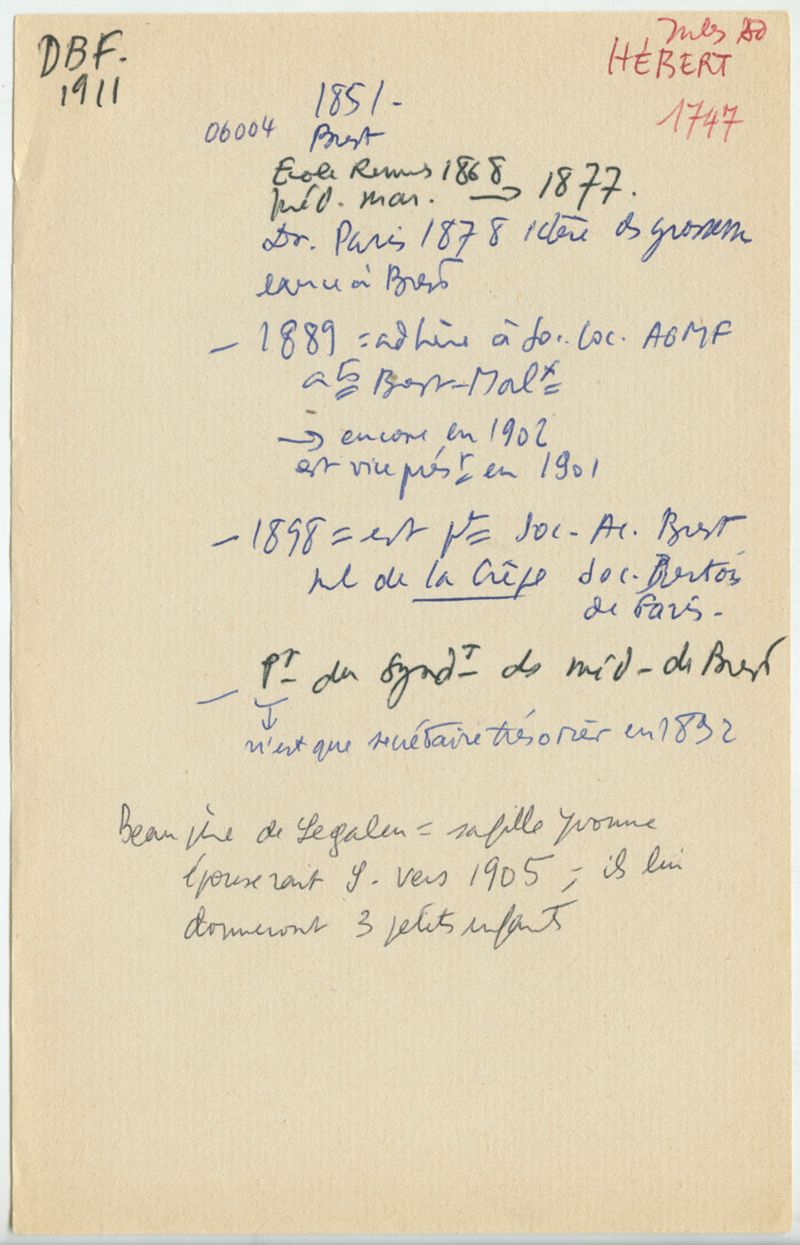 DBF.
1911
Jules Ad
HÉBERT
1747
1851-
06004
Brest
Ecole Rennes 1868
méd. mar. → 1877.
Dr. Paris 1878 ictère ds grossesse
exerce à Brest
- 1889 = adhère à Soc. loc. AGMF
Brest-Morlx
→ encore en 1902
est vice prést en 1901
- 1898 = est pt Soc. Ac. Brest
de la Crêpe Soc. Bretons
de Paris-
- Pt du Syndt ds méd- de Brest
↓
n'est que secrétaire trésorier en 1892
Beau père de Legalen = sa fille Yvonne
épouserait L. vers 1905 ; ils lui
donneront 3 petits enfants